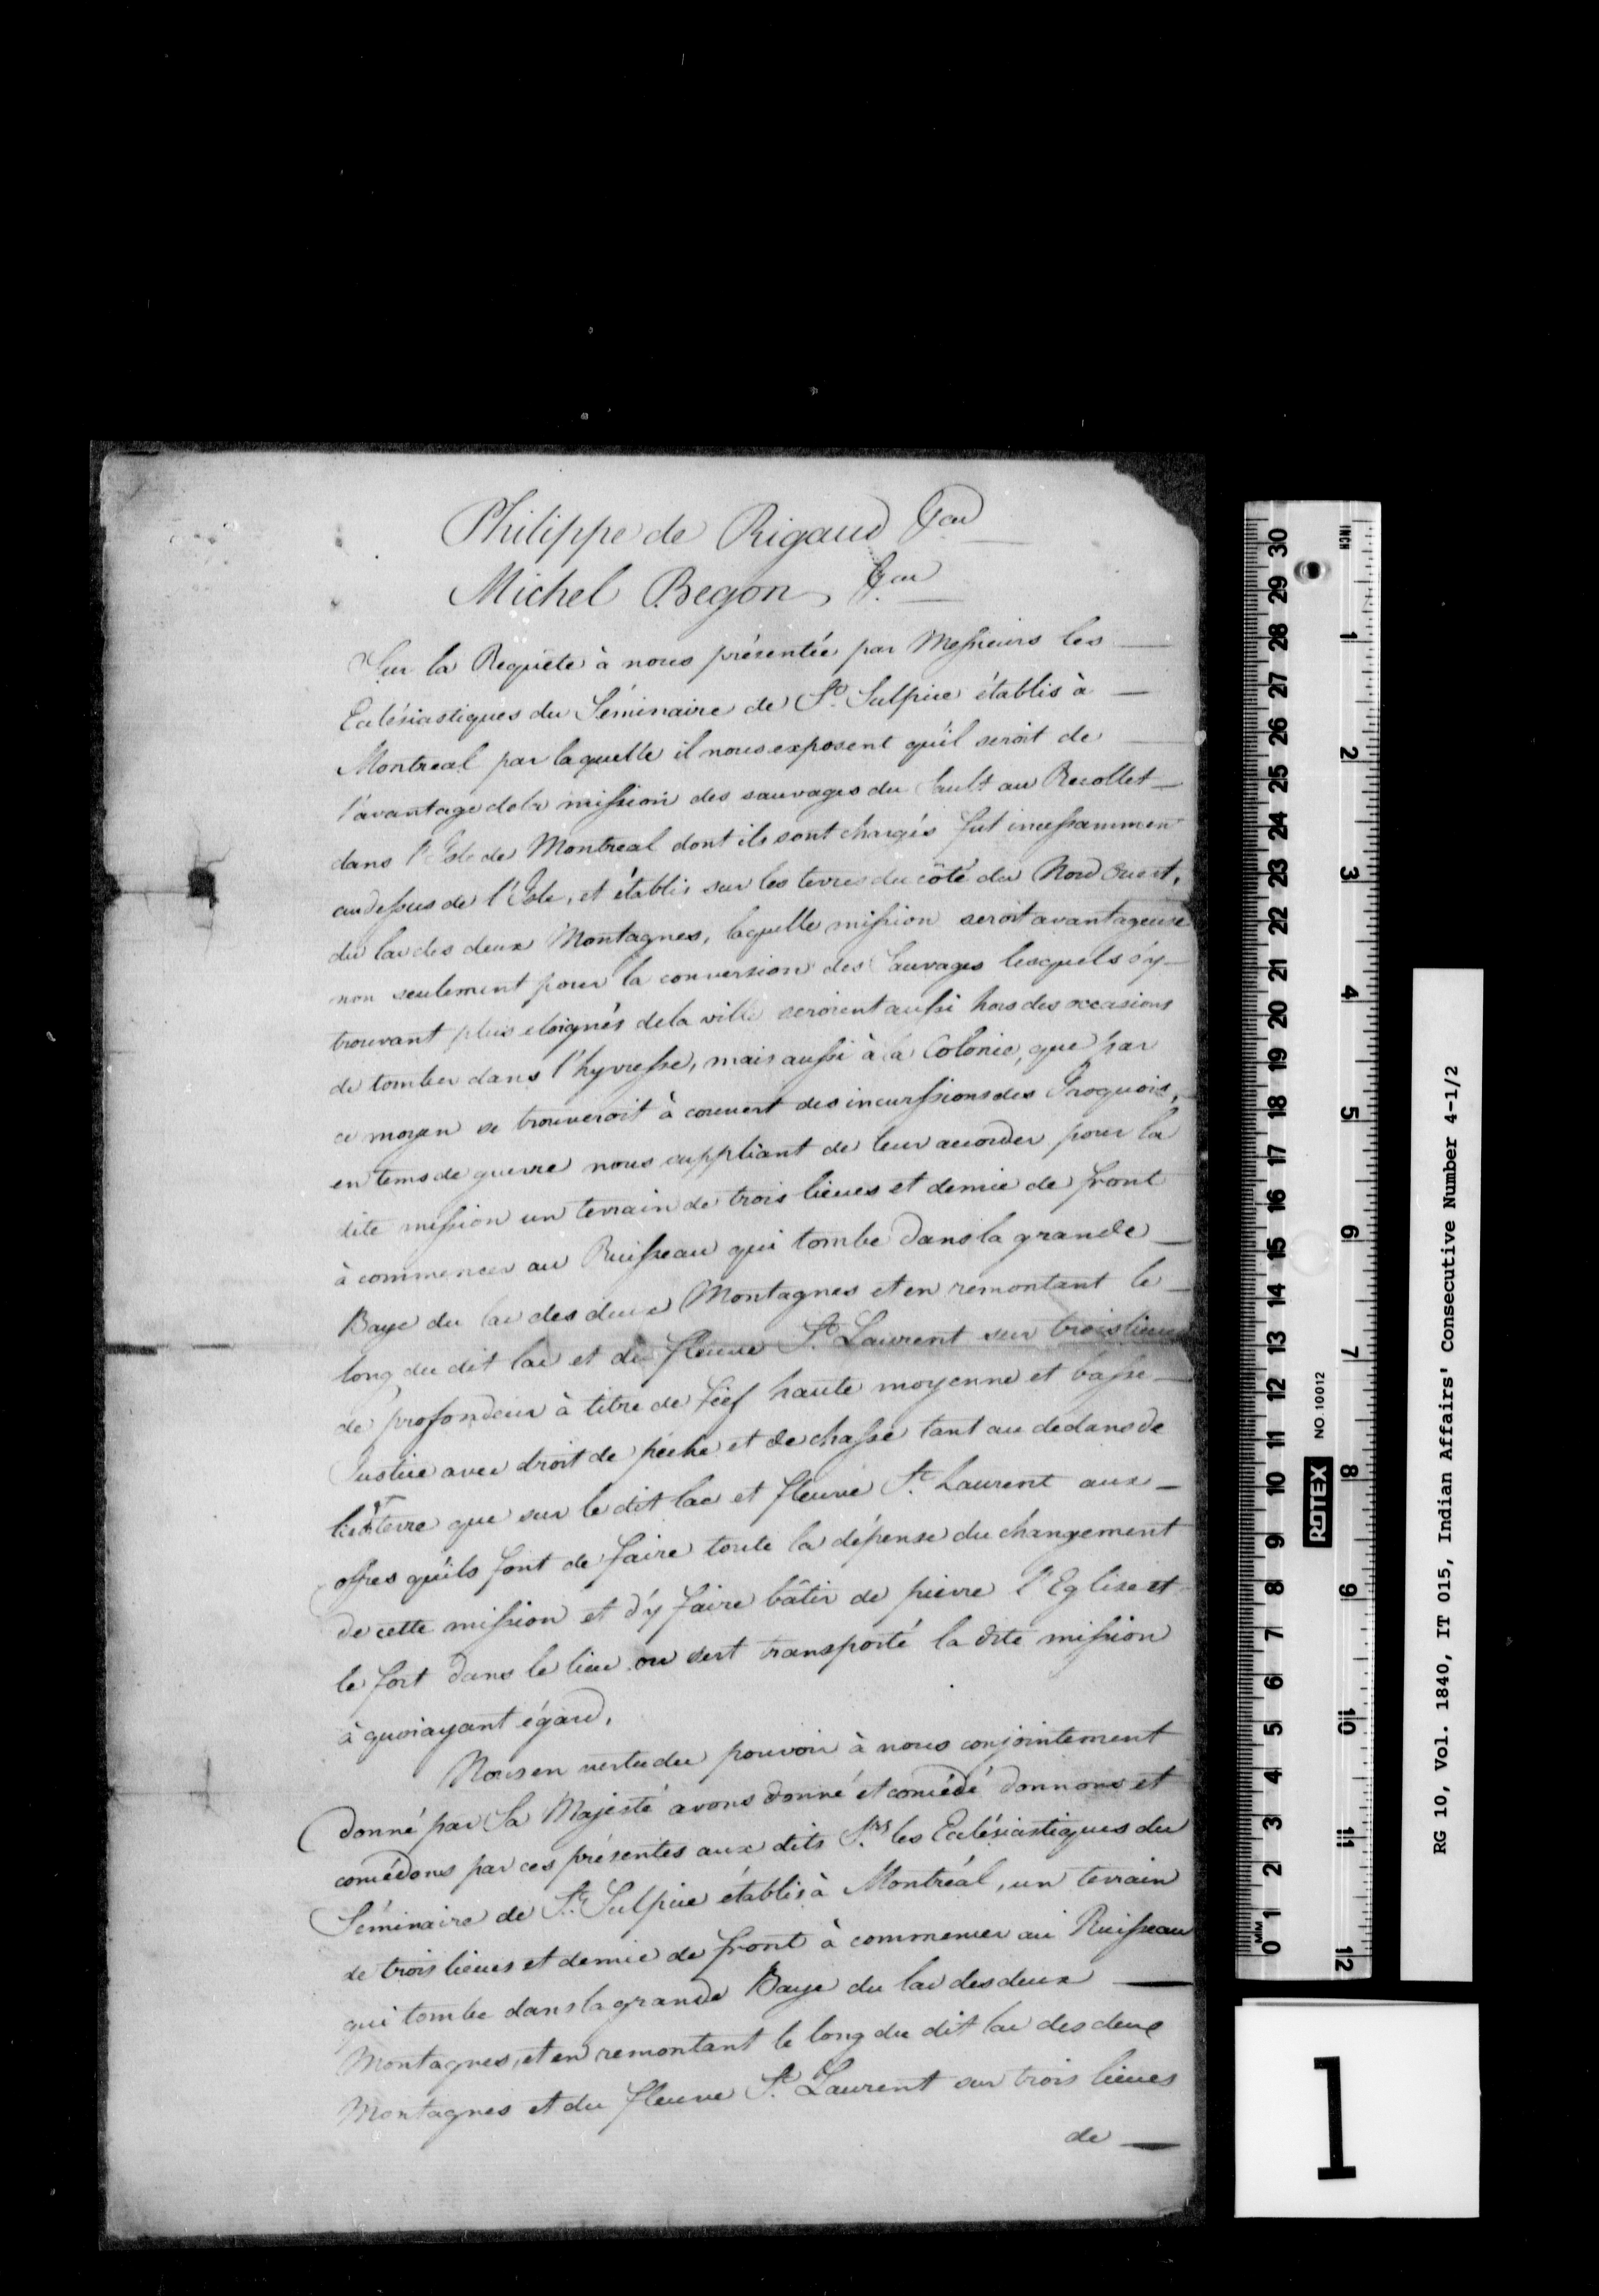 Philippe de Rigaud &ca
Michel Begon, &ca
Sur la Requête à nous présentée par Messieurs les
Eclésiastiques du Séminaire de St. Sulpice établis à
Montreal par laquelle il nous exposent qu'il seroit de
l'avantage de la mission des sauvages du Sault au Recollet
dans l'Isle de Montreal dont ils sont chargés fut incessammen
au dessus de l'Isle, et établis sur les terres du côté du Nord Ouest,
du lac des deux Montagnes, laquelle mission seroit avantageuse
non seulement pour la conversion des Sauvages lesquels s'y
trouvant plus eloignés de la ville seroient aussi hors des occasions
de tomber dans l'hyvresse, mais aussi à la Colonie, que par
ce moyen se trouveroit à couvert des incurssions des Iroquois,
en tems de guerre nous suppliant de leur accorder pour la
dite mission un terrain de trois lieues et demie de front
à commencer au Ruisseau qui tombe dans la grande
Baye du lac des deux Montagnes et en remontant le
long du dit lac et du fleuve St. Laurent sur trois lieues
de profondeur à titre de fief haute moyenne et basse
Justice avec droit de pêche et de chasse tant au dedans de
terre que sur le dit lac et fleuve St. Laurent aux
offres qu'ils font de faire toute la dépense du changement
de cette mission et d'y faire bâtir de pierre l'Eglise et
le fort dans le lieu ou sert transporté la dite mission
à quoi ayant égard,
Nous en vertu du pouvoir à nous conjointement
donné par Sa Majesté avons donné et concédé donnons et
concédons par ces présentes aux dits Srs. les Eclésiastiques du
Séminaire de St. Sulpice établis à Montréal, un terrain
de trois lieues et demie de front à commencer au Ruisseau
qui tombe dans la grande Baye du lac des deux
Montagnes, et en remontant le long du dit lac des deux
Montagnes et du fleuve St. Laurent sur trois lieues
de
INCH
1 2 3 4 5 6 7 8 9 10 11 12
30 29 28 27 26 25 24 23 22 21 20 19 18 17 16 15 14 13 12 11 10 9 8 7 6 5 4 3 2 1 0
MM
ROTEX NO. 10012
RG 10, Vol. 1840, IT 015, Indian Affairs' Consecutive Number 4-1/2
1